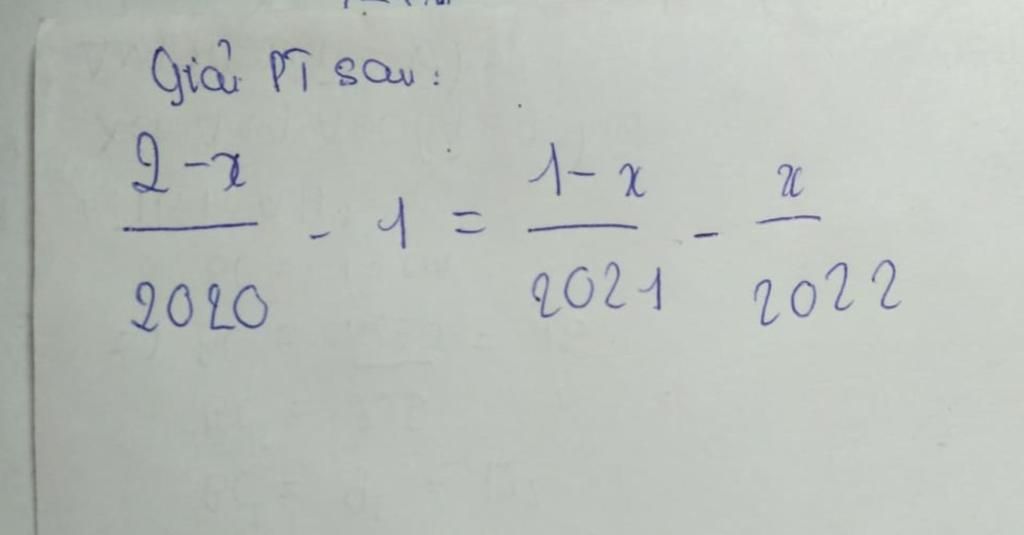 Giải PT sau:
2-x/2020 - 1 = 1-x/2021 - x/2022